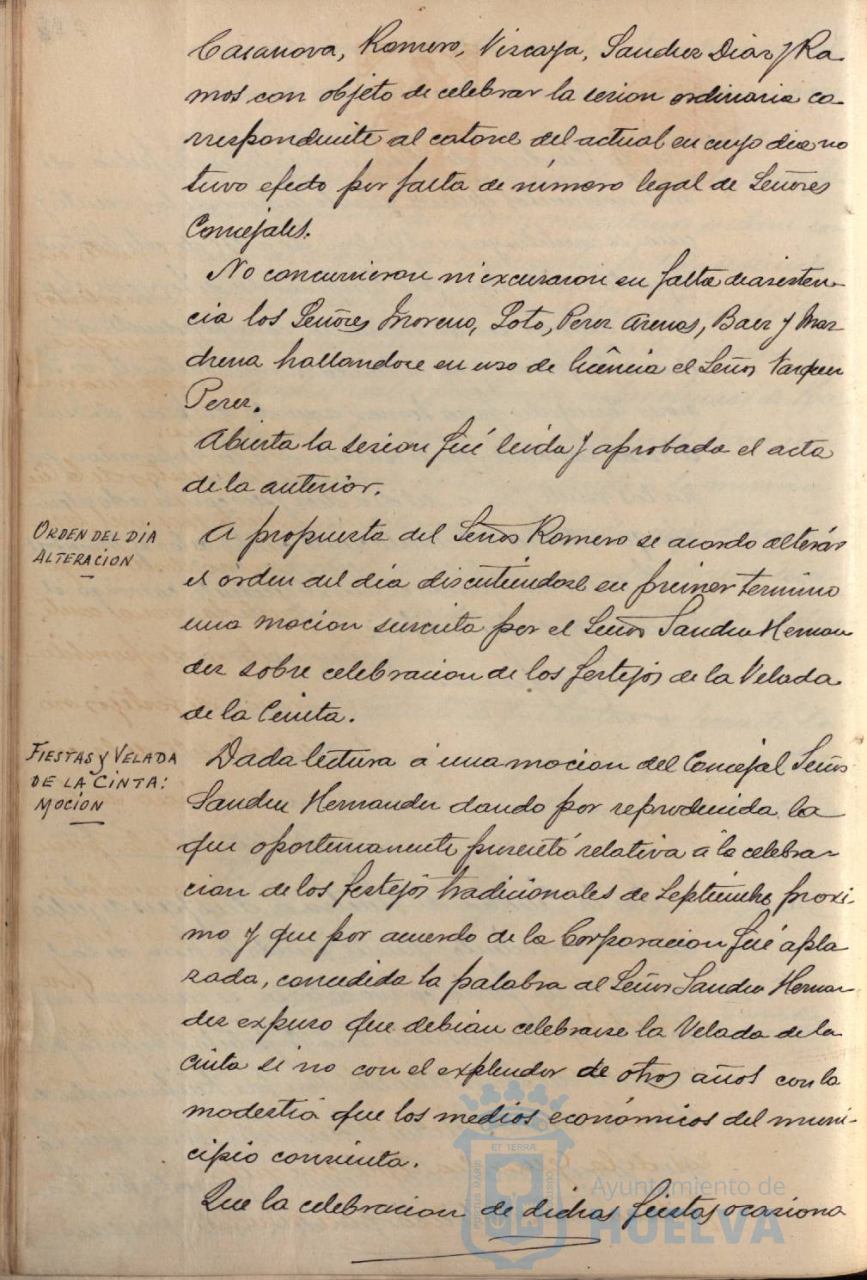 Casanova, Romero, Viscaya, Sanchez Diaz y Ra-
mos con objeto de celebrar la sesion ordinaria co-
rrespondiente al catorce del actual en cuyo dia no
tuvo efecto por falta de número legal de Señores
Concejales.
No concurrieron ni excusaron su falta de asisten-
cia los Señores Moreno, Soto, Perez Arenas, Baez y Mar
chena hallandose en uso de licéncia el Señor Vazquez
Perez.
Abierta la sesion fué leida y aprobada el acta
de la anterior.
ORDEN DEL DIA
ALTERACION
A propuesta del Señor Romero se acordo alterár
el órden del dia discutiendose en primer termino
una mocion suscrita por el Señor Sanchez Hernan
dez sobre celebracion de los festejos de la Velada
de la Cinta.
FIESTAS Y VELADA
DE LA CINTA:
MOCIÓN
Dada lectura á una mocion del Concejal Señor
Sanchez Hernandez dando por reproducida la
que oportunamente presentó relativa á la celebra-
cion de los festejos tradicionales de Septiembre proxi-
mo y que por acuerdo de la Corporacion fué apla
zada, concedida la palabra al Señor Sanchez Hernan
dez expuso que debian celebrarse la Velada de la
Cinta si no con el explendor de otros años con la
modestia que los medios económicos del muni-
cipio consienta.
Que la celebracion de dichas fiestas ocasiona
ET TERRÆ
PORTUS MARIS
CUSTODIA
Ayuntamiento de
HUELVA